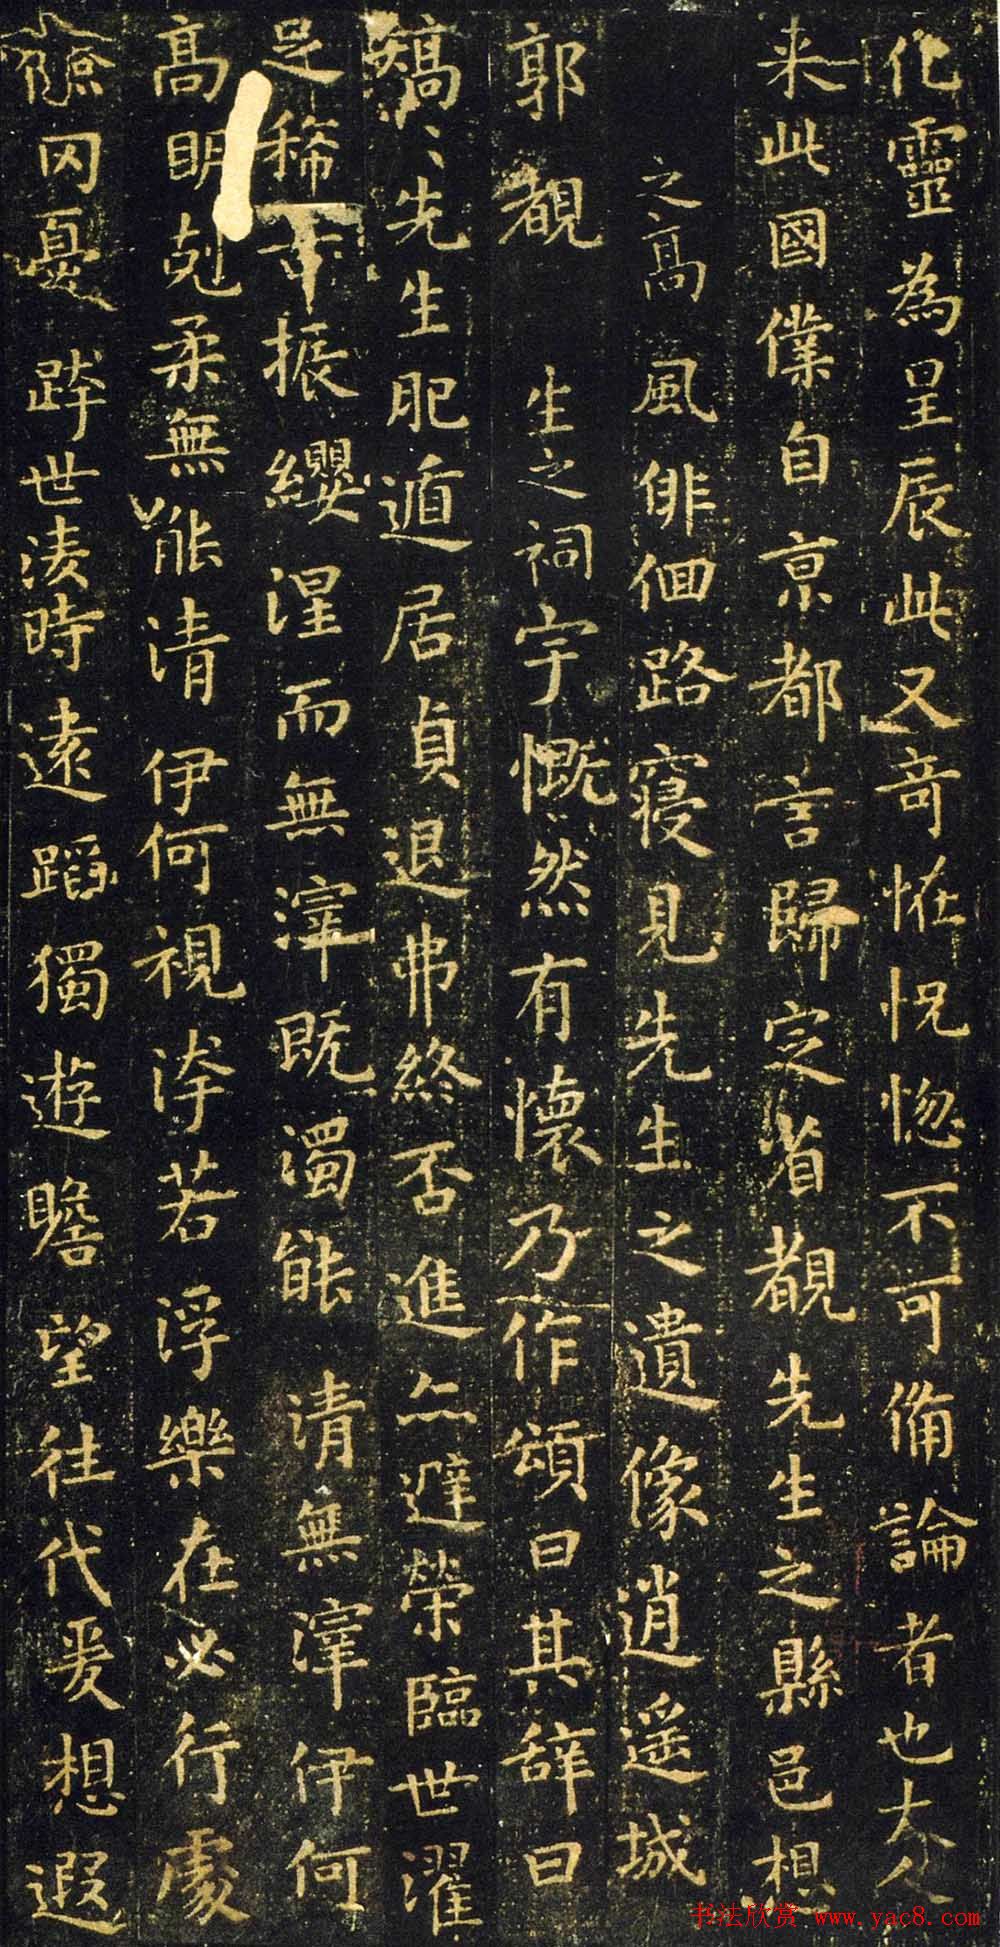 化靈為星辰此又奇恠怳惚不可俻論者也大人
来此國僕自京都言歸定省覩先生之縣邑想
之高風徘徊路寢見先生之遺像逍遥城
郭覩生之祠宇慨然有懷乃作頌曰其辞曰
矯〻先生肥遁居貞退弗終否進亦避榮臨世濯
足稀古振纓涅而無滓既濁能清無滓伊何
高明剋柔無能清伊何視汙若浮樂在必行處
儉罔憂跨世淩時遠蹈獨遊瞻望往代爰想遐
书法欣赏 www.yac8.com